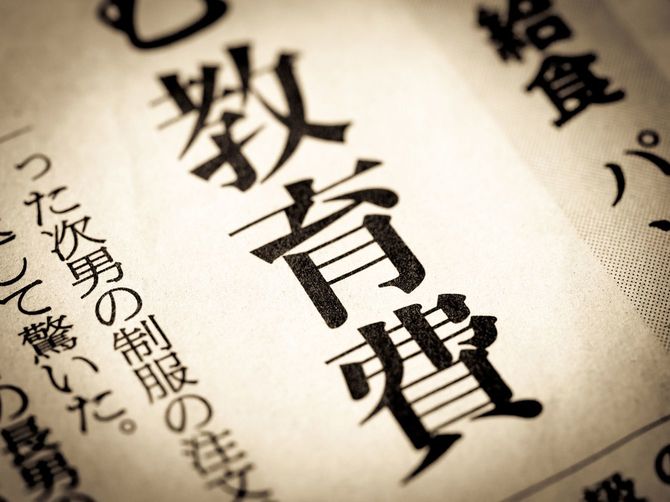 給食パ
教育費
った次男の制服の注文
して驚いた。
の長男